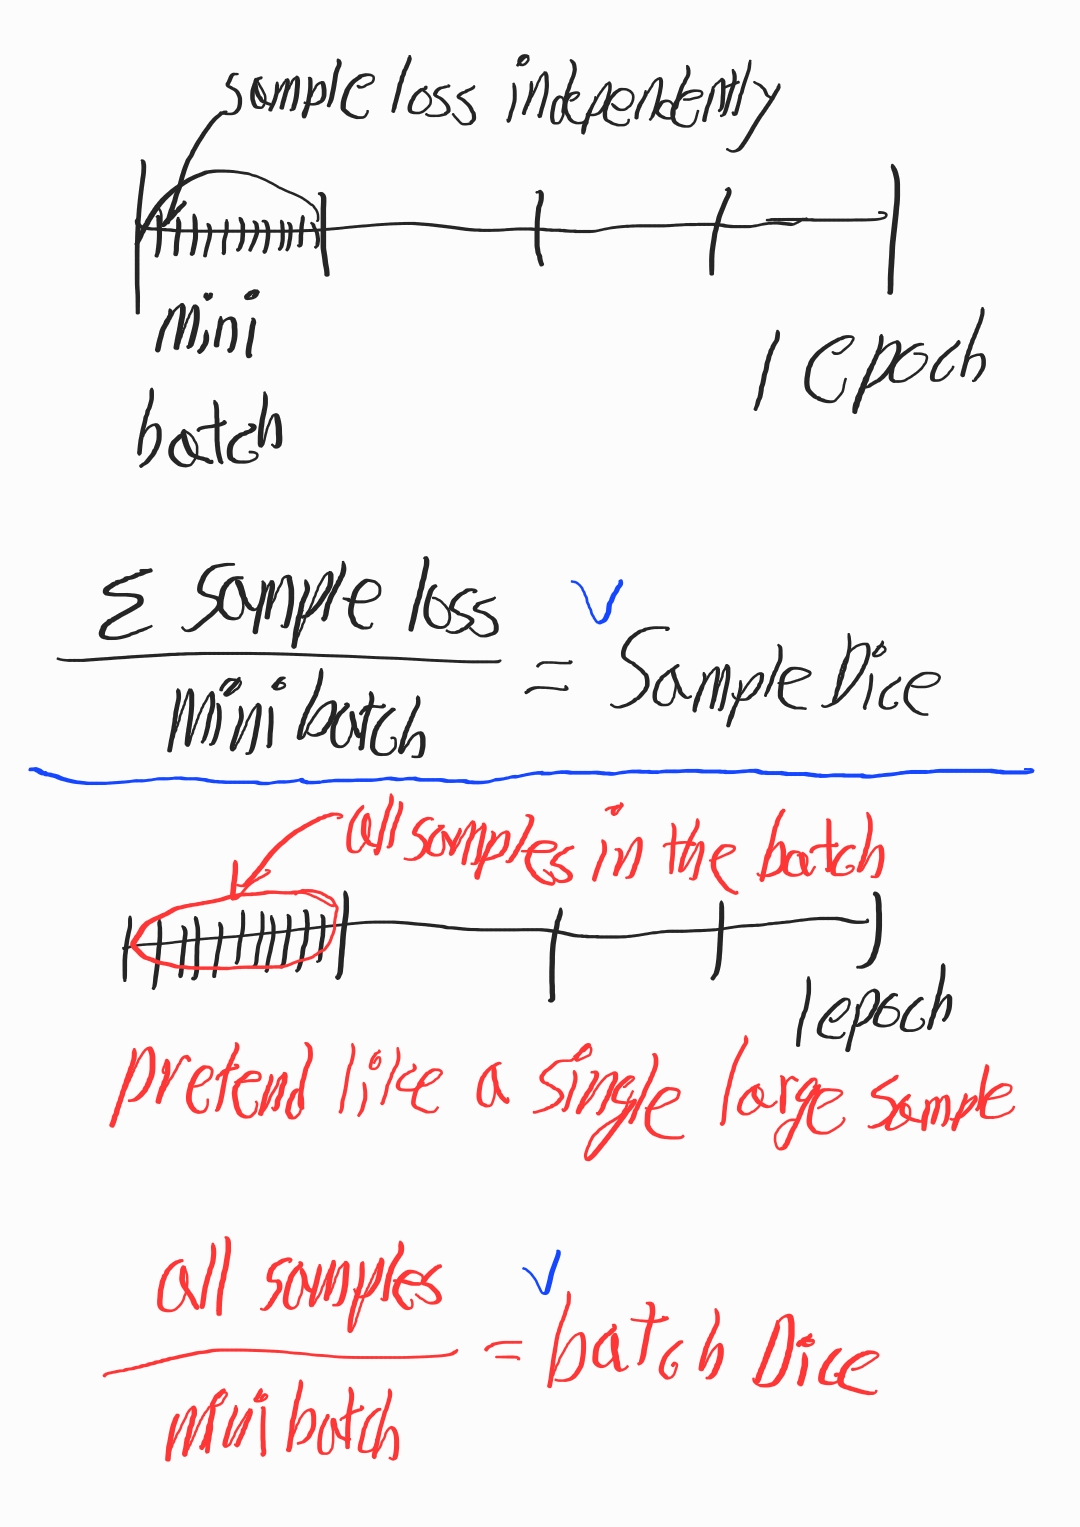 sample loss independently
mini
batch
1 epoch
Σ sample loss
mini batch
= Sample Dice
all samples in the batch
1 epoch
pretend like a single large sample
all samples
mini batch
= batch Dice